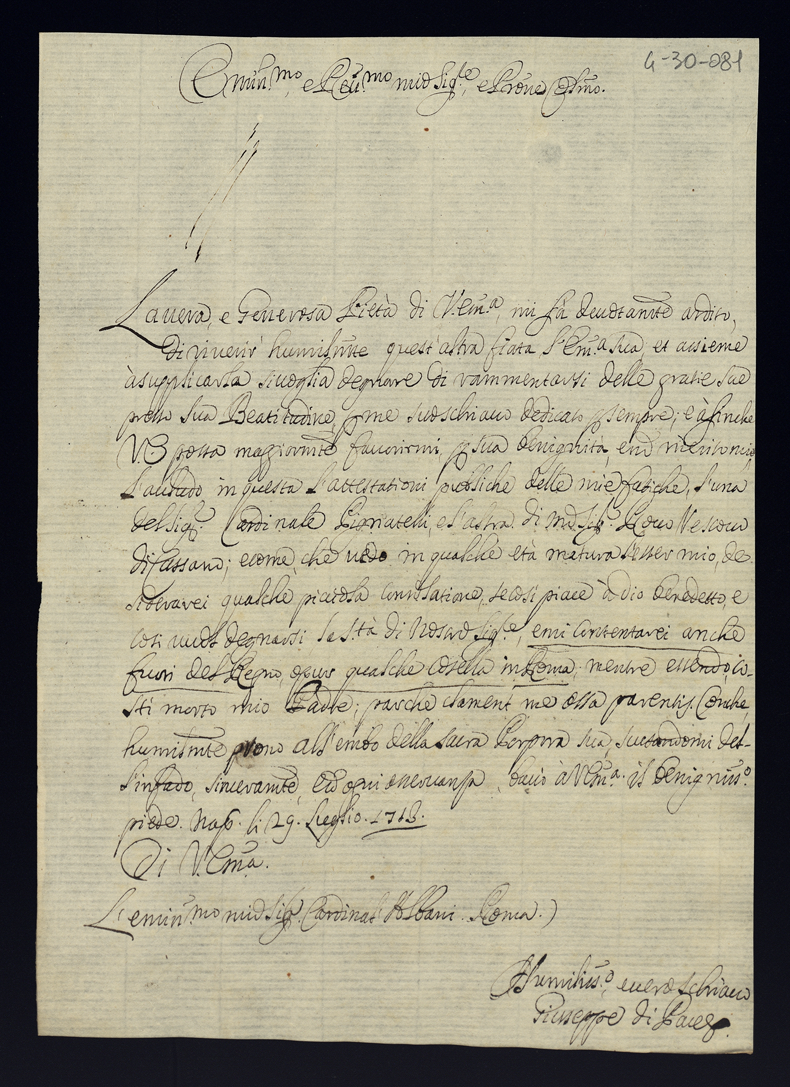 4-30-081
Emin.mo, e Reu.mo mio Sig.re, e Prone Col.mo.
La uera, e Generosa Pietà di V.Em.a, mi fà deuotamte ardito,
di riuerir humilmte quest'altra fiata l'Em.a sua, et assieme
à supplicarla si uoglia degnare di rammentarsi delle gratie sue
presso sua Beatitudine, p me suo schiauo dedicato p sempre; e à finche
V.E possa maggiormte fauorirmi, p sua benignità, e nõ merito mio
l'accludo in questa l'attestationi publiche delle mie fatiche, l'una
del Sig.r Cardinale Pignatelli, e l'altra di Mõ Sig.r Vescouo
di Cassano; e come, che uedo in qualche età matura l'esser mio, de
siderarei qualche pietosa consolatione, se così piace à dio benedetto, e
così uuole degnarsi la S.tà di Nostro Sig.re, e mi contentarei anche
fuori del Regno, opur qualche cosella in Roma, mentre essendo, co-
stì morto mio Padre; par che clament me ossa parentis. Onde,
humilmte prono all'embo della sacra Porpora sua, scusandomi del-
l'infado, sinceramte, ed ogni osseruanza, bacio à V.Em.a il benigniss.o
piede. Nap. li 29. Luglio. 1718.
Di V.Em.a.
L'emin.mo mio Sig.r Cardinal Albani. Roma.)
Humiliss.o, e uero schiauo
Giuseppe di Pace